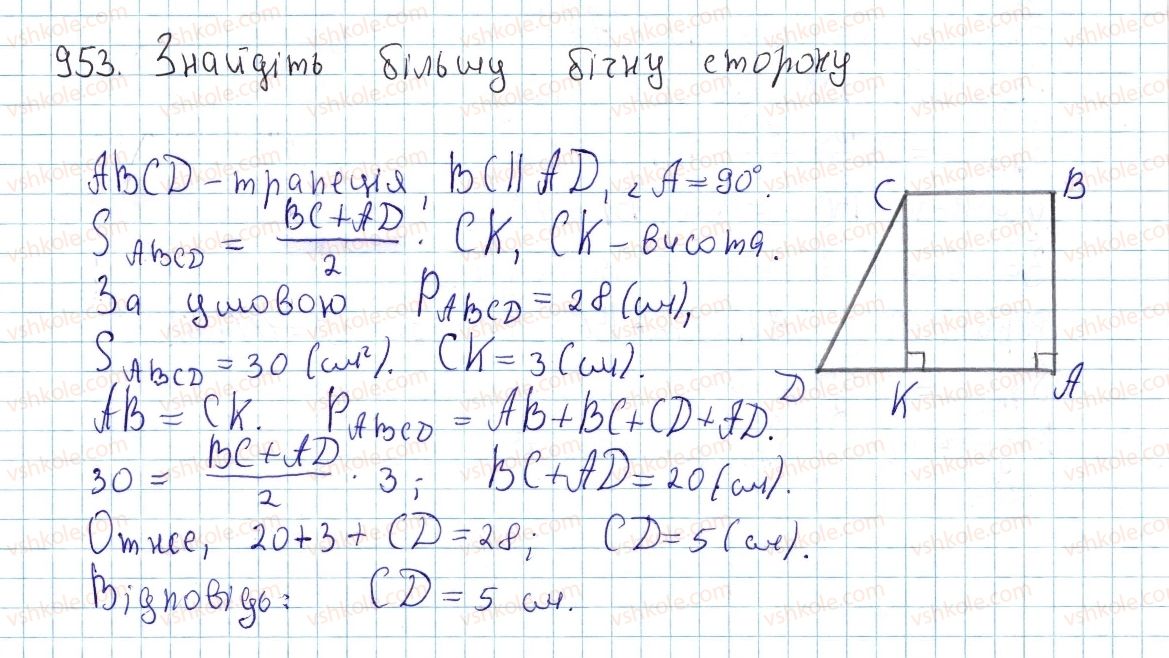 953. Знайдіть більшу бічну сторону
ABCD - трапеція, BC || AD, ∠A = 90°.
S ABCD = (BC + AD)/2 · CK, CK - висота.
За умовою P ABCD = 28 (см),
S ABCD = 30 (см²). CK = 3 (см).
AB = CK. P ABCD = AB + BC + CD + AD.
30 = (BC + AD)/2 · 3; BC + AD = 20 (см).
Отже, 20 + 3 + CD = 28; CD = 5 (см).
Відповідь: CD = 5 см.
C B
D K A
vshkole.com